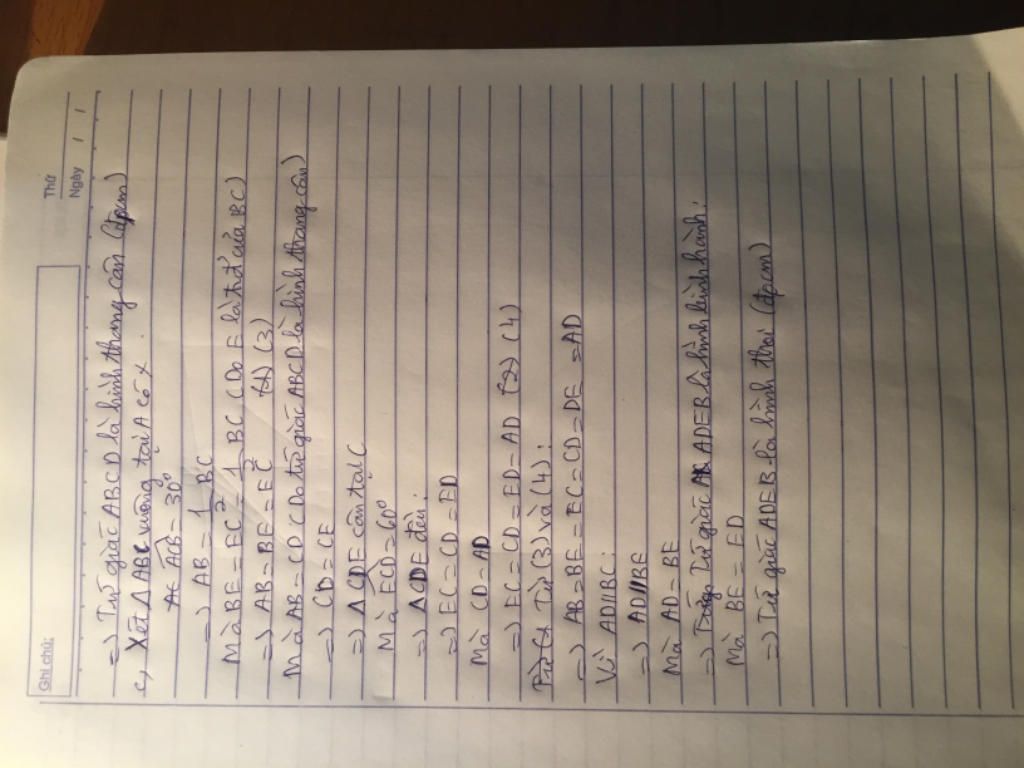 Ghi chú:
Thứ
Ngày / /
=> Tứ giác ABCD là hình thang cân (đpcm)
c, Xét Δ ABC vuông tại A có
ACB = 30°
=> AB = 1/2 BC
Mà BE = EC = 1/2 BC (Do E là tđ của BC)
=> AB = BE = EC (3)
Mà AB = CD (Do tứ giác ABCD là hình thang cân)
=> CD = CE
=> Δ CDE cân tại C
Mà ECD = 60°
=> ΔCDE đều:
=> EC = CD = ED
Mà CD = AD
=> EC = CD = ED = AD (4)
Từ (3) và (4):
=> AB = BE = EC = CD = DE = AD
Vì AD//BC:
=> AD//BE
Mà AD = BE
=> Tứ giác ADEB là hình bình hành:
Mà BE = ED
=> Tứ giác ADEB là hình thoi (đpcm)